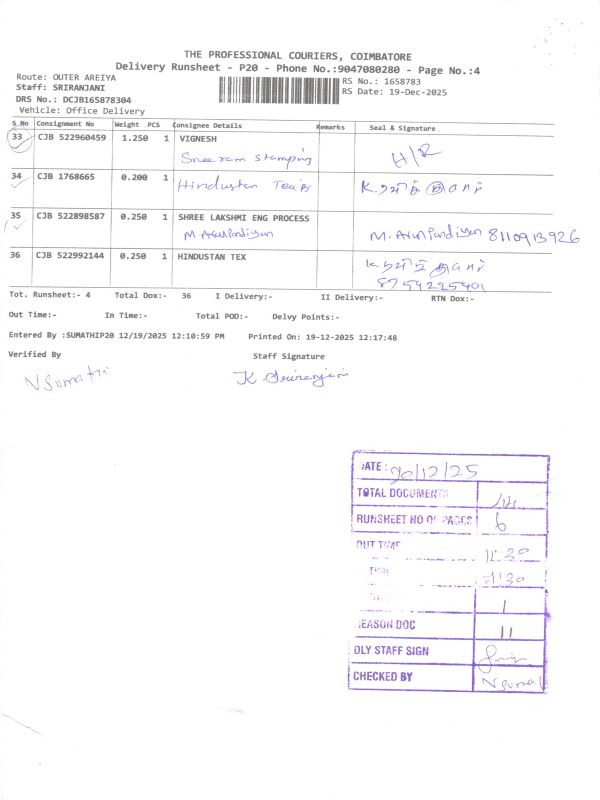 THE PROFESSIONAL COURIERS, COIMBATORE
Delivery Runsheet - P20 - Phone No.:9047080280 - Page No.:4
Route: OUTER AREIYA
RS No.: 1658783
Staff: SRIRANJANI
RS Date: 19-Dec-2025
DRS No.: DCJB165878304
Vehicle: Office Delivery
S No Consignment No Weight PCS Consignee Details Remarks Seal & Signature
33 CJB 522960459 1.250 1 VIGNESH
Sree ram Stamping H/R
34 CJB 1768665 0.200 1 Hindustan Tex
35 CJB 522898587 0.250 1 SHREE LAKSHMI ENG PROCESS
M ArunPandiyan M. ArunPandiyan 8110913926
36 CJB 522992144 0.250 1 HINDUSTAN TEX
8754225401
Tot. Runsheet:- 4 Total Dox:- 36 I Delivery:- II Delivery:- RTN Dox:-
Out Time:- In Time:- Total POD:- Delvy Points:-
Entered By :SUMATHIP20 12/19/2025 12:10:59 PM Printed On: 19-12-2025 12:17:48
Verified By Staff Signature
N Sumathi K Sriranjani
DATE: 20/12/25
TOTAL DOCUMENTS
RUNSHEET NO OF PAGES 6
OUT TIME 11.30
TIME
1
REASON DOC 11
DLY STAFF SIGN
CHECKED BY N Sumathi